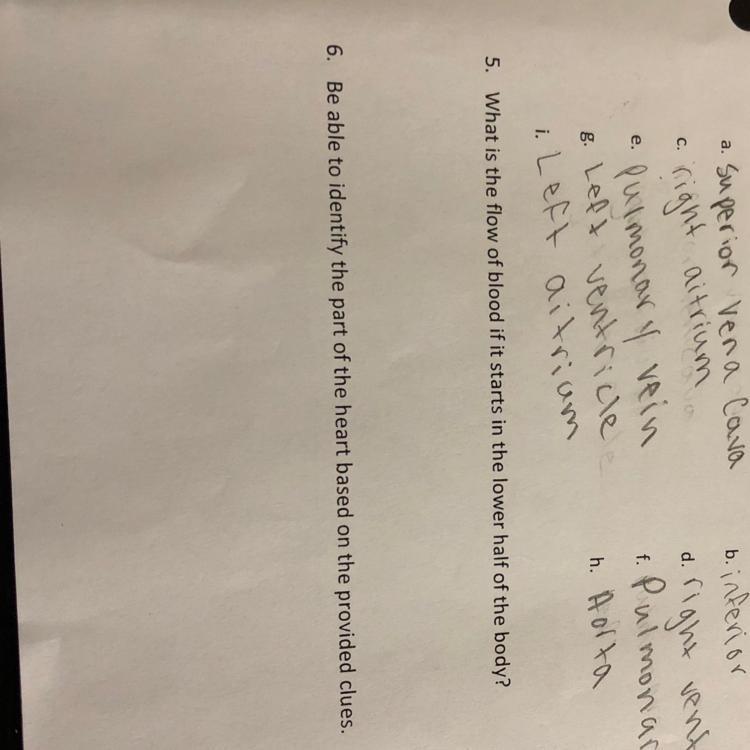 a. Superior Vena Cava b. inferior
c. right aitrium d. right vent
e. Pulmonary vein f. Pulmonar
g. Left ventricle h. Aorta
i. Left aitrium
5. What is the flow of blood if it starts in the lower half of the body?
6. Be able to identify the part of the heart based on the provided clues.